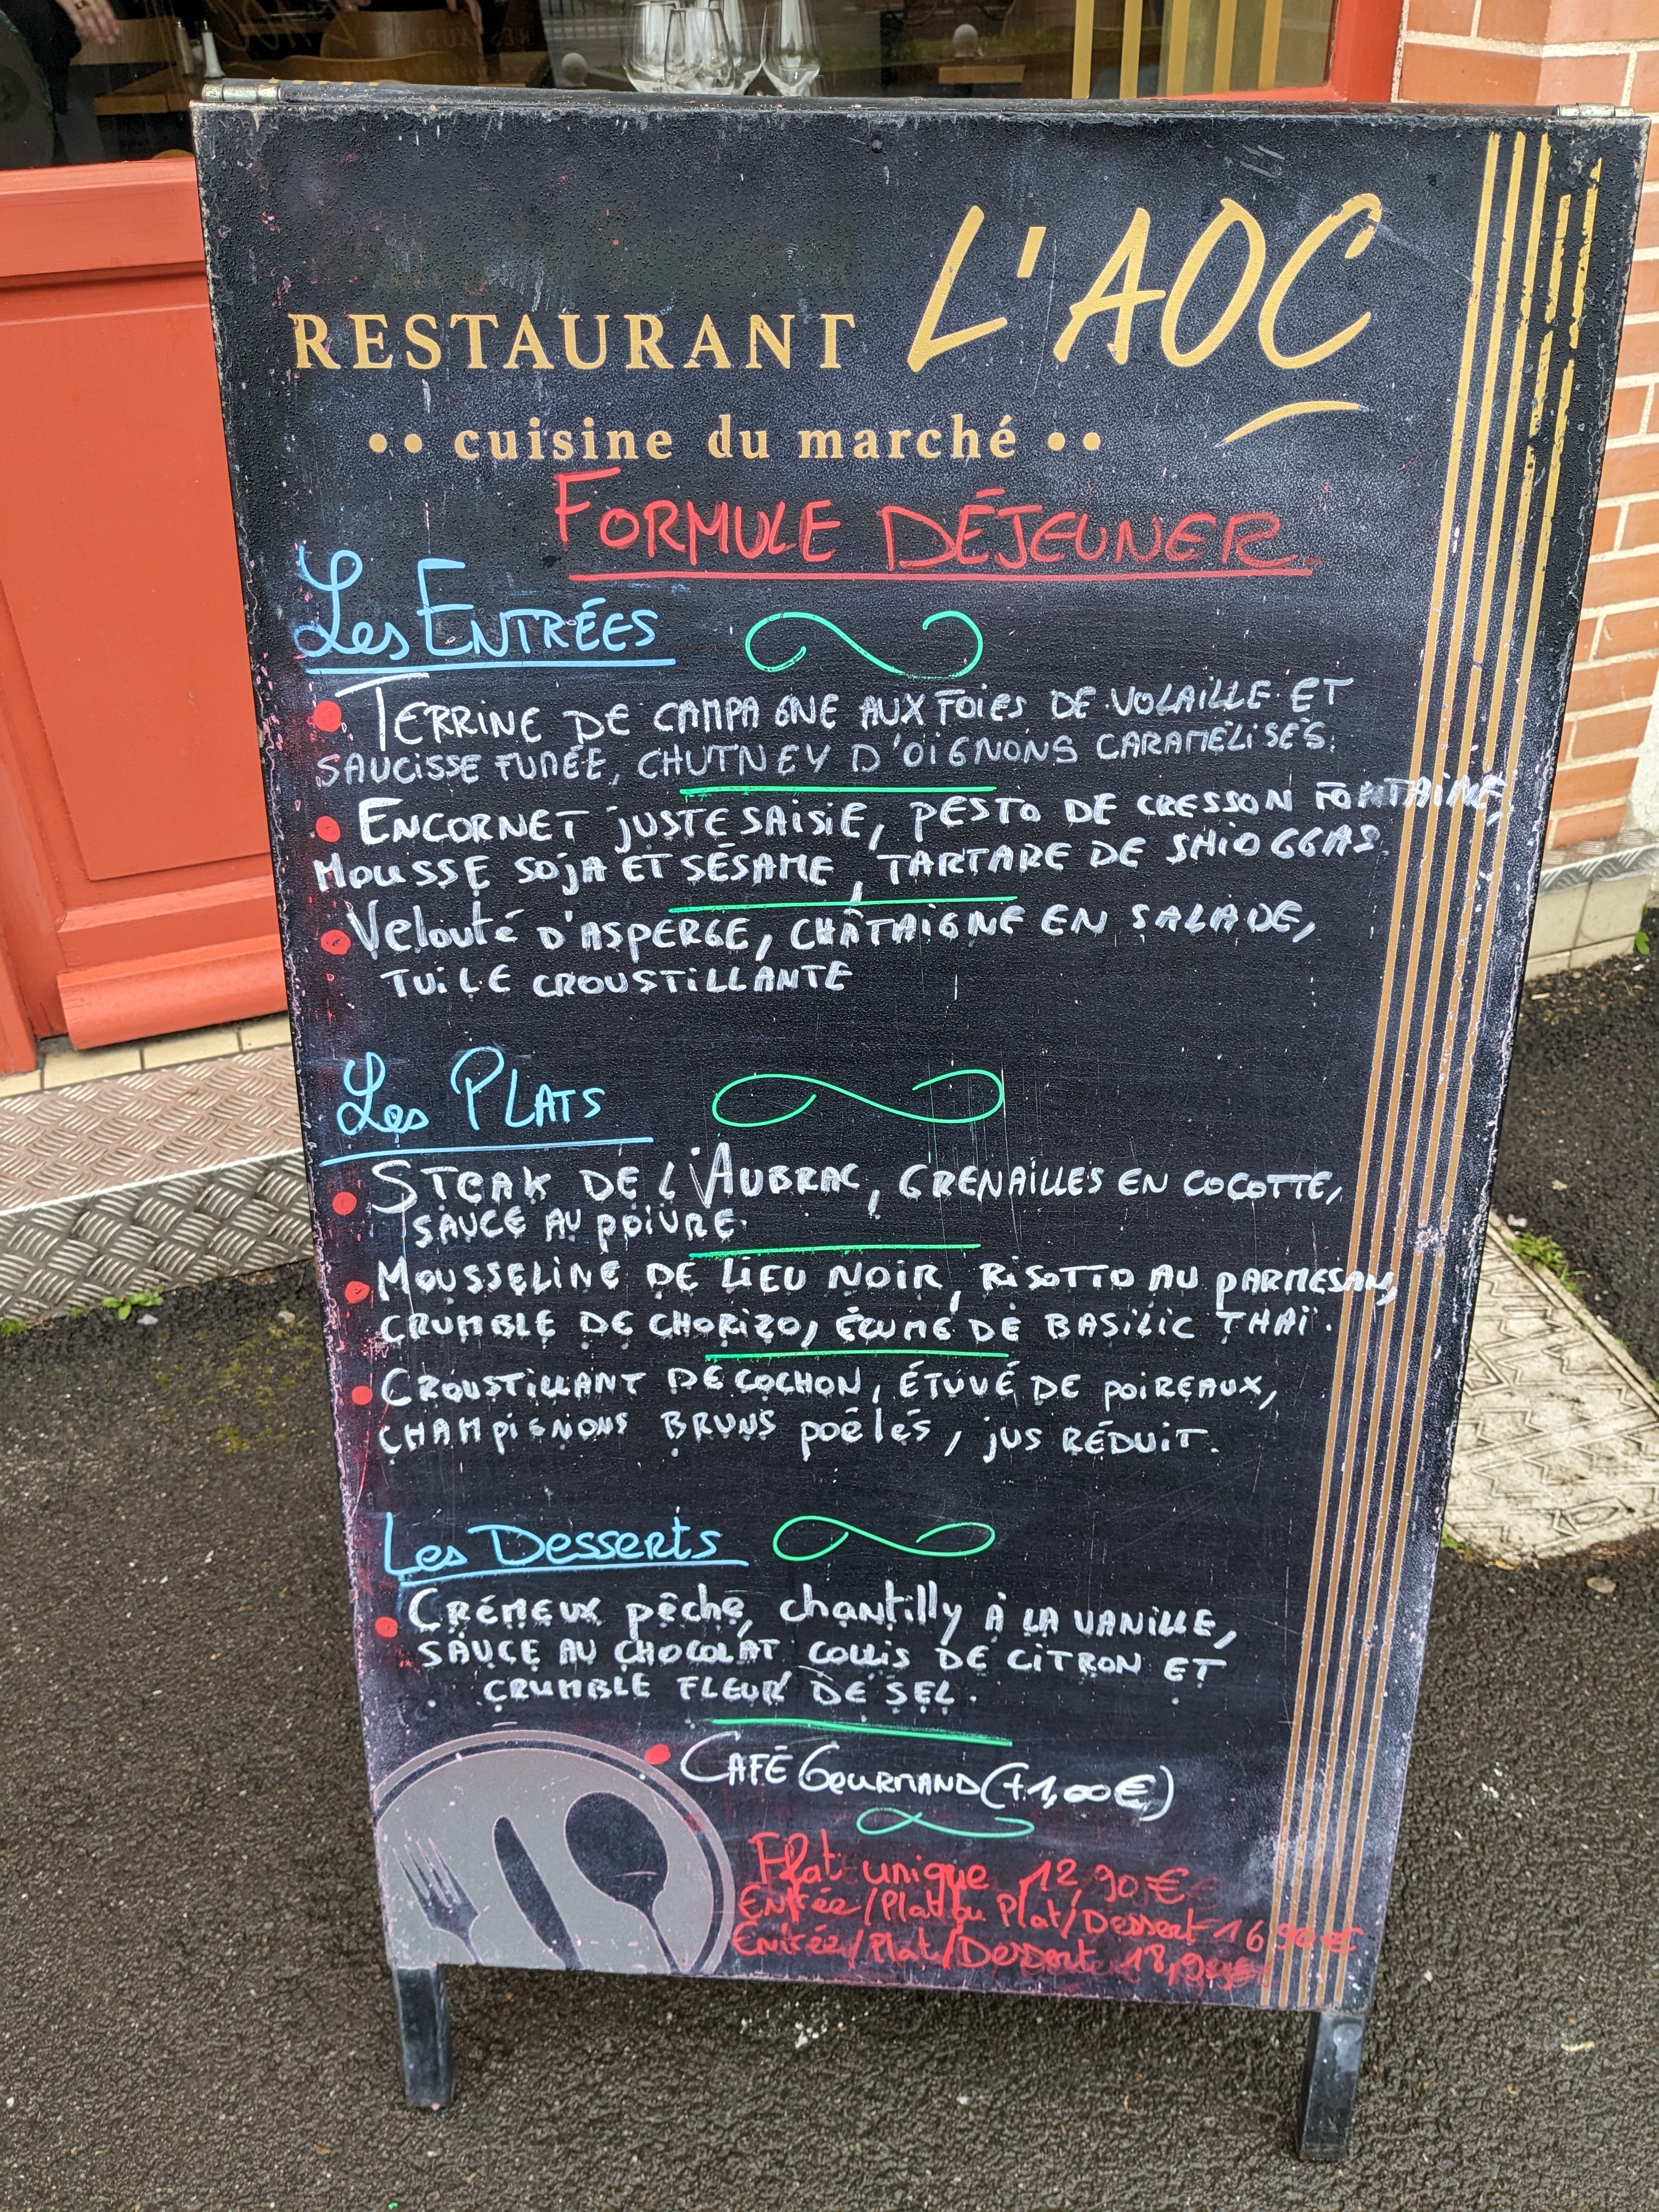 RESTAURANT L'AOC
•• cuisine du marché ••
FORMULE DÉJEUNER
Les ENTRÉES
• TERRINE DE CAMPAGNE AUX FOIES DE VOLAILLE ET
SAUCISSE FUMÉE, CHUTNEY D'OIGNONS CARAMÉLISÉS.
• ENCORNET JUSTE SAISIE, PESTO DE CRESSON FONTAINE,
MOUSSE SOJA ET SÉSAME, TARTARE DE SHIOGGAS.
• Velouté D'ASPERGE, CHÂTAIGNE EN SALADE,
TUILE CROUSTILLANTE
Les PLATS
• STEAK DE L'AUBRAC, GRENAILLES EN COCOTTE,
SAUCE AU POIVRE.
• MOUSSELINE DE LIEU NOIR, RISOTTO AU PARMESAN,
CRUMBLE DE CHORIZO, ÉCUME DE BASILIC THAÏ.
• CROUSTILLANT DE COCHON, ÉTUVÉ DE POIREAUX,
CHAMPIGNONS BRUNS poêlés, jUS RÉDUIT.
Les Desserts
• CRÉMEUX pêche, chantilly À LA VANILLE,
SAUCE AU CHOCOLAT COULIS DE CITRON ET
CRUMBLE FLEUR DE SEL.
• CAFÉ GOURMAND (+1,00€)
Plat unique 12,90€
Entrée/Plat ou Plat/Dessert 16,90€
Entrée/Plat/Dessert 18,